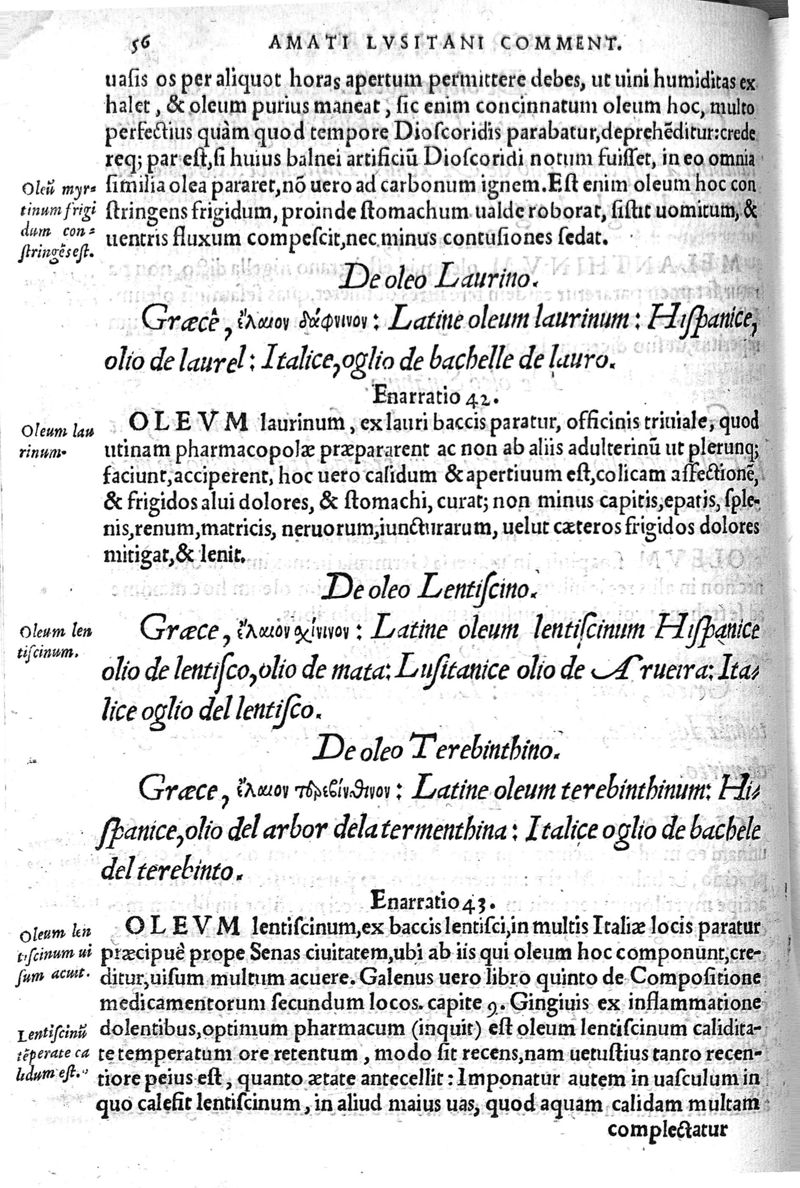 56 AMATI LVSITANI COMMENT.
uasis os per aliquot horas apertum permittere debes, ut uini humiditas ex
halet, & oleum purius maneat, sic enim concinnatum oleum hoc, multo
perfectius quàm quod tempore Dioscoridis parabatur, deprehēditur: crede
req; par est, si huius balnei artificiū Dioscoridi notum fuisset, in eo omnia
similia olea pararet, nō uero ad carbonum ignem. Est enim oleum hoc con
stringens frigidum, proinde stomachum ualde roborat, sistit uomitum, &
uentris fluxum compescit, nec minus contusiones sedat.
Oleū myr=
tinum frigi
dum con=
stringēs est.
De oleo Laurino.
Græcè, ἔλαιον δάφνινον: Latine oleum laurinum: Hispanice,
olio de laurel: Italice, oglio de bachelle de lauro.
Enarratio 42.
Oleum lau
rinum.
OLEVM laurinum, ex lauri baccis paratur, officinis triuiale, quod
utinam pharmacopolæ præpararent ac non ab aliis adulterinū ut plerunq;
faciunt, acciperent, hoc uero calidum & apertiuum est, colicam affectionē,
& frigidos alui dolores, & stomachi, curat; non minus capitis, epatis, sple-
nis, renum, matricis, neruorum, iuncturarum, uelut cæteros frigidos dolores
mitigat, & lenit.
De oleo Lentiscino.
Oleum len
tiscinum.
Græce, ἔλαιον σχίνινον: Latine oleum lentiscinum Hispanice
olio de lentisco, olio de mata: Lusitanice olio de Arueira: Ita-
lice oglio del lentisco.
De oleo Terebinthino.
Græce, ἔλαιον τερεβίνθινον: Latine oleum terebinthinum: Hi-
spanice, olio del arbor dela termenthina: Italice oglio de bachele
del terebinto.
Enarratio 43.
Oleum len
tiscinum ui
sum acuit.
OLEVM lentiscinum, ex baccis lentisci, in multis Italiæ locis paratur
præcipuè prope Senas ciuitatem, ubi ab iis qui oleum hoc componunt, cre-
ditur, uisum multum acuere. Galenus uero libro quinto de Compositione
medicamentorum secundum locos. capite 9. Gingiuis ex inflammatione
Lentiscinū
tēperate ca
lidum est.
dolentibus, optimum pharmacum (inquit) est oleum lentiscinum calidita-
te temperatum ore retentum, modo sit recens, nam uetustius tanto recen-
tiore peius est, quanto ætate antecellit: Imponatur autem in uasculum in
quo calefit lentiscinum, in aliud maius uas, quod aquam calidam multam
complectatur